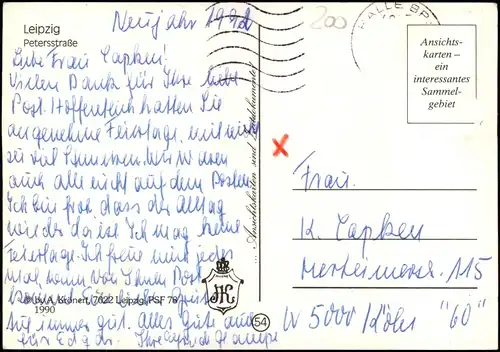 Leipzig
Petersstraße
Neujahr 1992
200
HALLE
Ansichts-
karten –
ein
interessantes
Sammel-
gebiet
Liebe Frau Capken!
Vielen Dank für Ihre liebe
Post. Hoffentlich hatten Sie
angenehme Feiertage, mit nicht
zu viel Schmerzen. Wir waren
auch alle nicht auf dem Posten.
Ich bin froh, dass der Alltag
wieder da ist. Ich mag keine
Feiertage. Ich freue mich jedes
mal, wenn von Ihnen Post
Auf immer gut. Alles Gute auch
für Edgar. Ihre
... Ansichtskarten sind Zeitdokumente
© by A. Kronert, 7022 Leipzig, PSF 78
1990
54
Frau
K. Capken
115
W 5000 Köln "60"